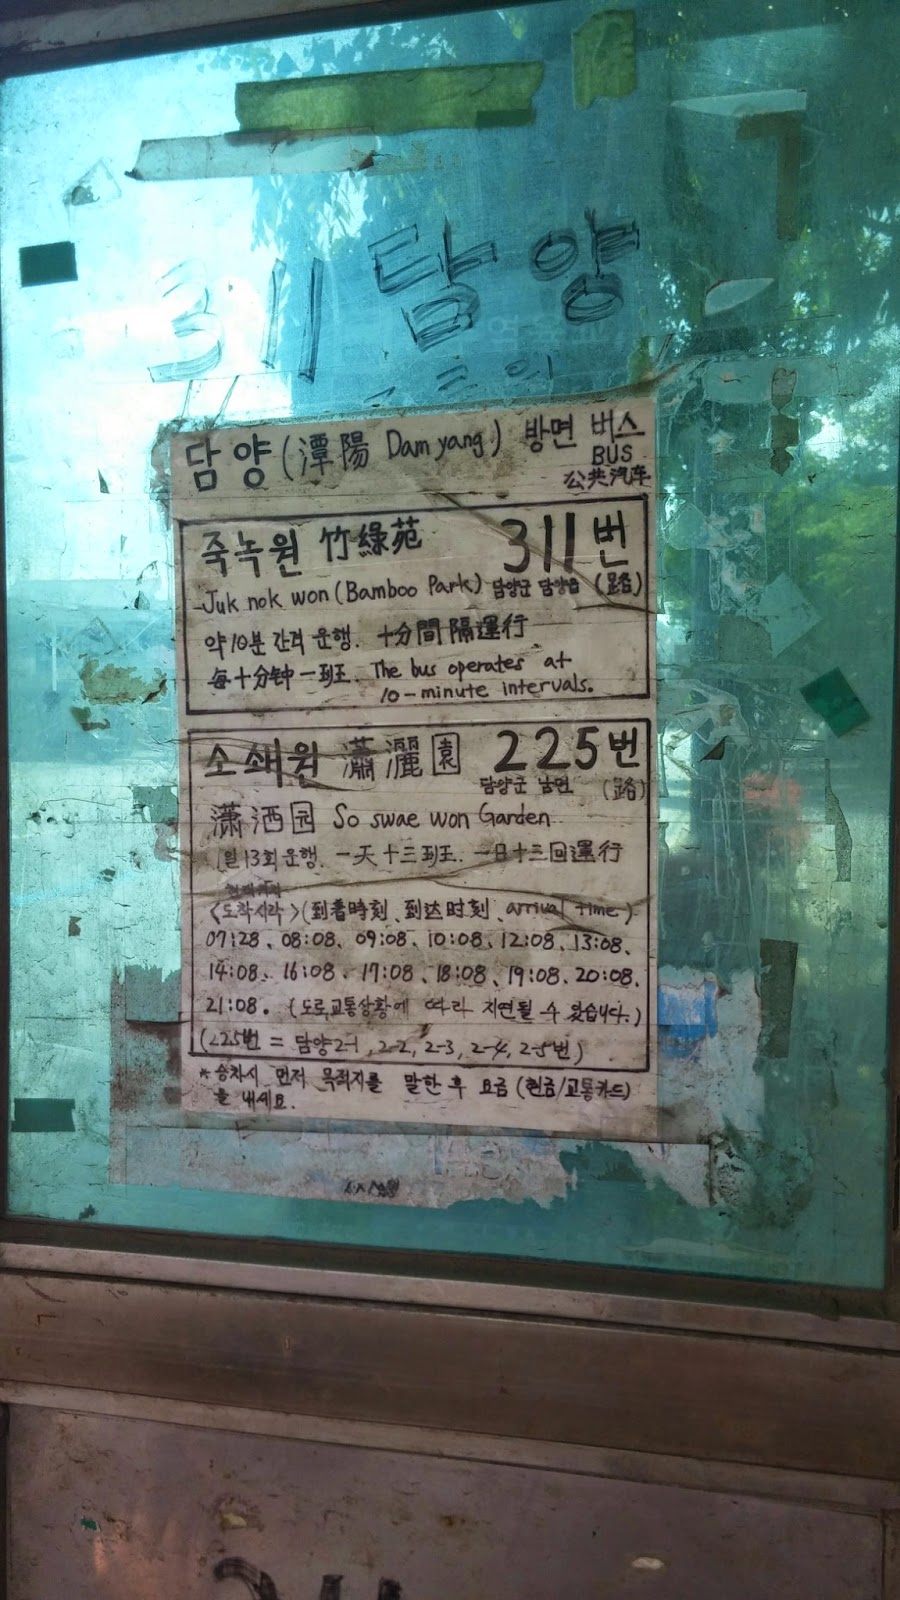 311 담양
담양 (潭陽 Damyang) 방면 버스
BUS
公共汽车
죽녹원 竹綠苑 311번
Juk nok won (Bamboo Park) 담양군 담양읍 (路)
약 10분 간격 운행. 十分間隔運行
每十分钟一班. The bus operates at
10-minute intervals.
소쇄원 瀟灑園 225번
담양군 남면 (路)
潇洒园 So swae won Garden
1일 13회 운행. 一天十三班. 一日十三回運行
<도착시각> (到着時刻、到达时刻、arrival time)
07:28、08:08、09:08、10:08、12:08、13:08、
14:08、16:08、17:08、18:08、19:08、20:08、
21:08. (도로교통상황에 따라 지연될 수 있습니다.)
(225번 = 담양2-1, 2-2, 2-3, 2-4, 2-5번)
*승차시 먼저 목적지를 말한 후 요금 (현금/교통카드)
을 내세요.